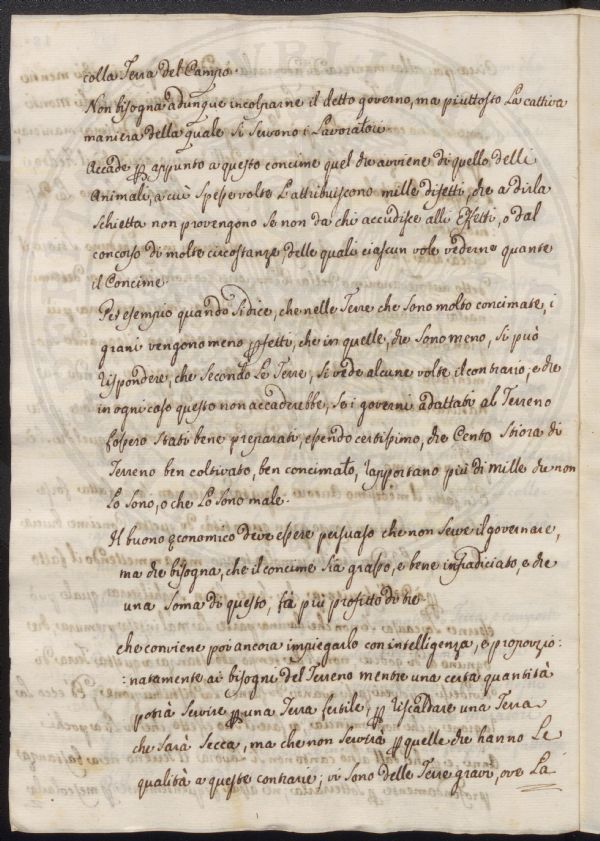 colla Terra del Campo.
Non bisogna adunque incolparne il detto governo, ma piuttosto La cattiva
maniera della quale si servono i Lavoratori.
Accade p appunto a questo concime quel che avviene di quello delli
Animali, a cui spesse volte L'attribuiscono mille difetti, che a dirla
schietta non provengono se non da chi accudisce alli Effetti, o dal
concorso di molte circostanze, delle quali ciascun vole vederne quante
il Concime.
Per esempio quando si dice, che nelle Terre che sono molto concimate, i
grani vengono meno pfetti, che in quelle, che sono meno, si può
rispondere, che secondo Le Terre, si vede alcune volte il contrario; e che
in ogni caso questo non accaderebbe, se i governi adattati al Terreno
fossero stati bene preparati, essendo certissimo, che Cento Stiora di
Terreno ben coltivato, ben concimato, rapportano più di mille che non
Lo sono, o che Lo sono male.
Il buono economico deve essere persuaso che non serve il governare,
ma che bisogna, che il concime sia grasso, e bene infradiciato, e che
una soma di questo, fa più profitto di tre
che conviene poi ancora impiegarlo con intelligenza, e proporzio:
:natamente ai bisogni del Terreno mentre una certa quantità
potrà servire p una Terra fertile, p riscaldare una Terra
che sarà secca, ma che non servirà p quelle che hanno Le
qualità a queste contrarie; vi sono delle Terre gravi, ove La